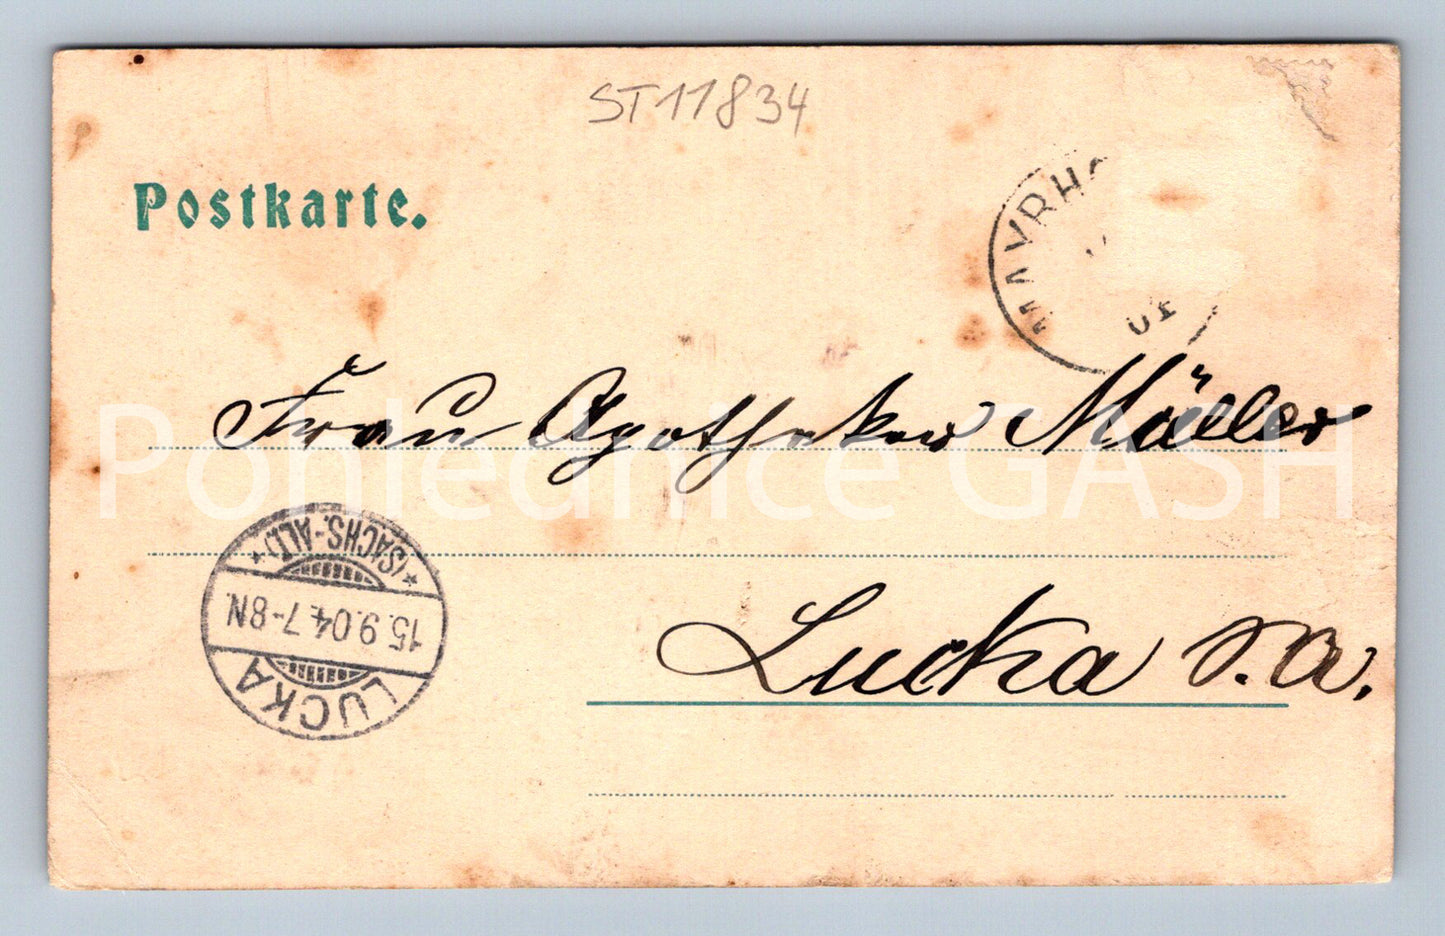 ST11834
Postkarte.
MAVRH
04
Frau Apotheker Müller
Pohlednice GASH
Lucka S.A.
LUCKA
15.9.04.7-8N.
*(SACHS.-ALT.)*